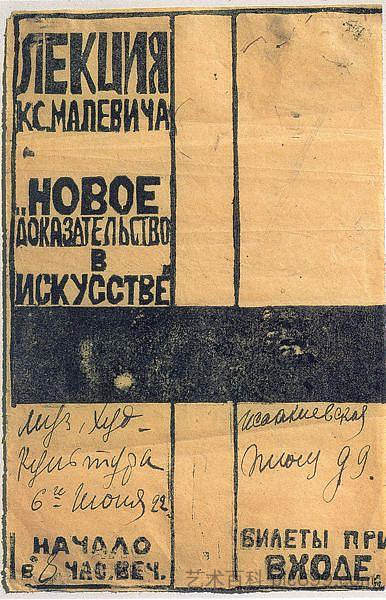 ЛЕКЦИЯ
К.С.МАЛЕВИЧА
„НОВОЕ
ДОКАЗАТЕЛЬСТВО
В
ИСКУССТВЕ"
Муз. Худ.
Культура
6го Июня 22
Исаакиевская
99.
НАЧАЛО
В 8 ЧАС. ВЕЧ.
БИЛЕТЫ ПРИ
ВХОДЕ.
艺术百科